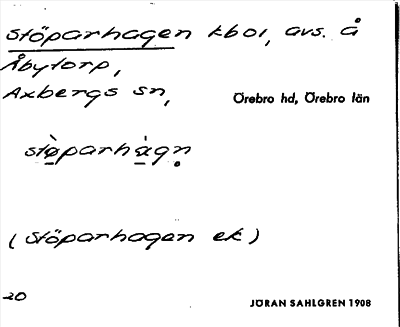 Stöparhagen tboi, avs. å
Åbytorp,
Axbergs sn,
Örebro hd, Örebro län
stø̀parhàgn̥
(Stöparhagen ek)
20
JÖRAN SAHLGREN 1908